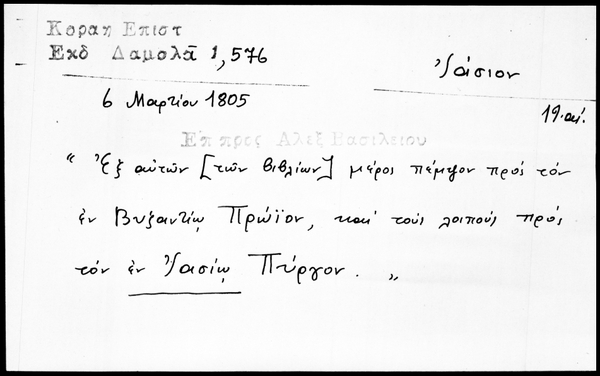 Κοραη Επιστ
Εκδ Δαμαλᾶ 1,576
Ἰάσιον
6 Μαρτίου 1805
19. αἰ.
Επ προς Αλεξ Βασιλειου
"Ἐξ αὐτῶν [τῶν βιβλίων] μέρος πέμψον πρός τόν
ἐν Βυζαντίῳ Πρώϊον, καί τούς λοιπούς πρός
τόν ἐν Ἰασίῳ Πύργον. "